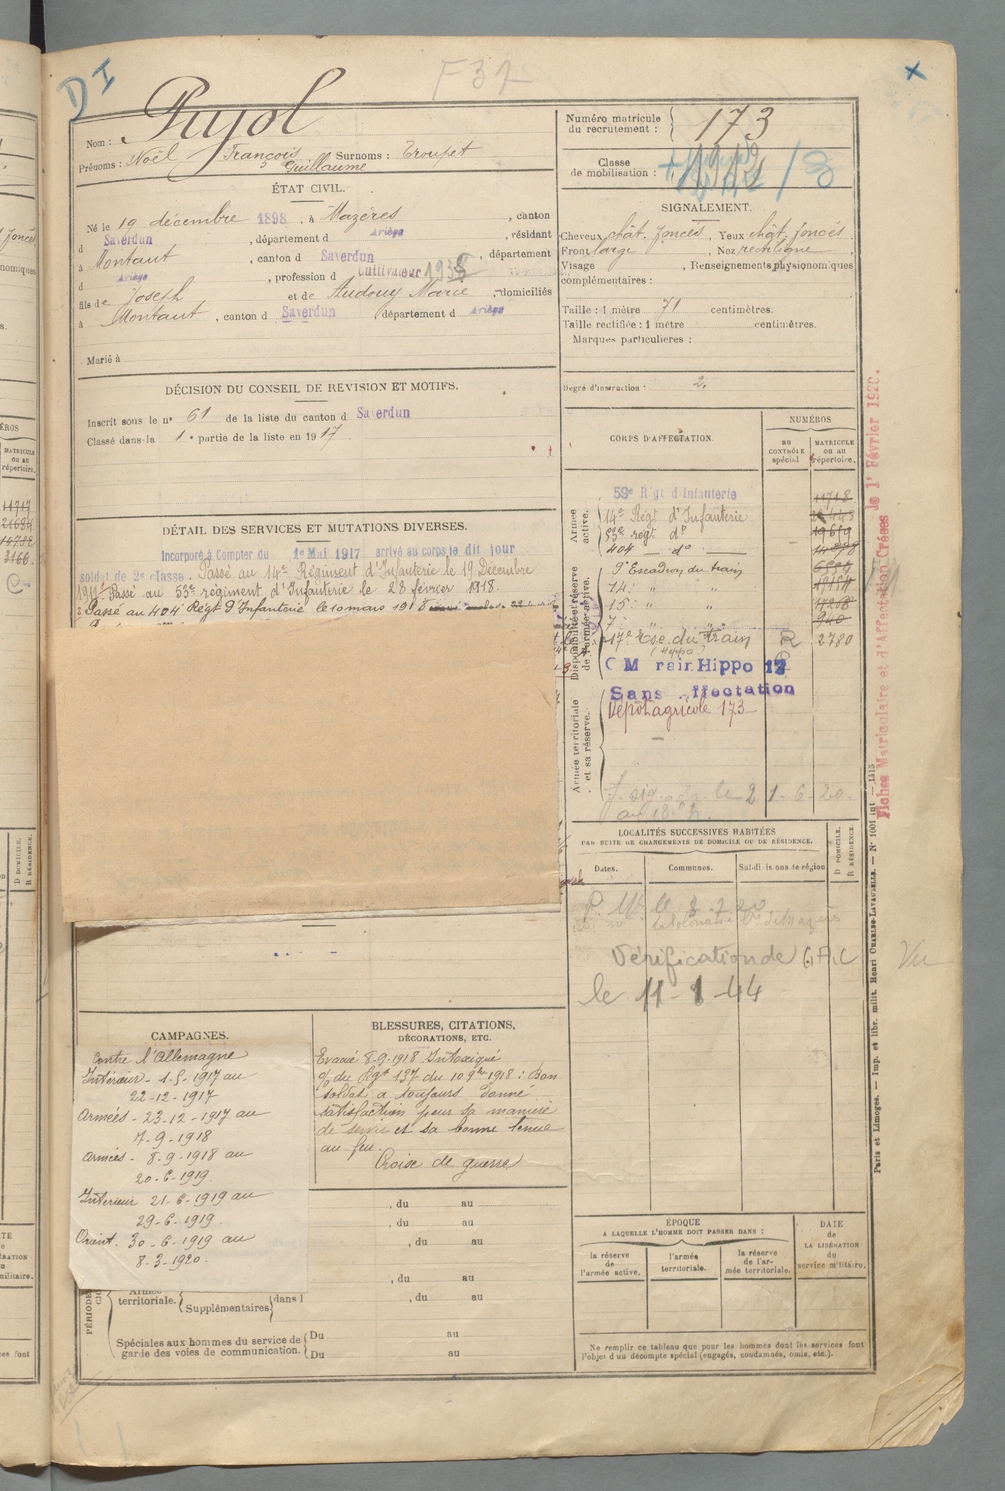 DI
F 37
Nom : Pujol
Prénoms : Noël François Guillaume Surnoms : Troupet
ÉTAT CIVIL.
Né le 19 décembre 1898, à Mazères, canton
d Saverdun, département d Ariège, résidant
à Montaut, canton d Saverdun, département
d Ariège, profession d Cultivateur
fils de Joseph et de Audouy Marie, domiciliés
à Montaut, canton d Saverdun département d Ariège
Marié à
DÉCISION DU CONSEIL DE REVISION ET MOTIFS.
Inscrit sous le n° 61 de la liste du canton d Saverdun
Classé dans la 1e partie de la liste en 1917.
DÉTAIL DES SERVICES ET MUTATIONS DIVERSES.
Incorporé à Compter du 1e Mai 1917 arrivé au corps le dit jour
soldat de 2e classe. Passé au 14e Régiment d'Infanterie le 19 Décembre
1917. Passé au 53e régiment d'Infanterie le 28 février 1918.
Passé au 404e Régt d'Infanterie le 10 mars 1918
CAMPAGNES.
Contre l'Allemagne
Intérieur - 1-5-1917 au
22-12-1917
Armées - 23-12-1917 au
7-9-1918
Armées - 8-9-1918 au
20-6-1919
Intérieur 21-6-1919 au
29-6-1919
Orient. 30-6-1919 au
8-3-1920.
BLESSURES, CITATIONS,
DÉCORATIONS, ETC.
Evacué 8-9-1918 Intoxiqué
O/ du Rgt 137 du 10 9bre 1918 : Bon
soldat a toujours donné
satisfaction pour sa manière
de servir et sa bonne tenue
au feu.
Croise de guerre
, du au
, du au
, du au
, du au
, du au
Armée territoriale. Supplémentaires dans l
Spéciales aux hommes du service de garde des voies de communication. Du au
Du au
Numéro matricule du recrutement : 173
Classe de mobilisation :
SIGNALEMENT.
Cheveux chât. foncés, Yeux chât. foncés
Front large, Nez rectiligne
Visage , Renseignements physionomiques
complémentaires :
Taille : 1 mètre 71 centimètres.
Taille rectifiée : 1 mètre centimètres.
Marques particulières :
Degré d'instruction : 2.
CORPS D'AFFECTATION.
NUMÉROS
au CONTRÔLE spécial
MATRICULE ou au répertoire.
Armée active.
59e Régt d'Infanterie 11718
14e Régt d'Infanterie
53e regt do
404 — do —
Disponibilité et réserve de l'armée active.
Escadron du train
14 " "
15 " "
7 " " 940
17e Esc. du train R 2780
(Hippo)
C M rain Hippo
Sans ffectation
Armée territoriale et sa réserve.
Dépôt agricole 173
le 21-6-20.
LOCALITÉS SUCCESSIVES HABITÉES
PAR SUITE DE CHANGEMENTS DE DOMICILE OU DE RÉSIDENCE.
Dates. Communes. Subdivisions de région
D DOMICILE. R RÉSIDENCE.
Vérification de G.A.C
le 11-1-44
Vu
ÉPOQUE
A LAQUELLE L'HOMME DOIT PASSER DANS :
la réserve de l'armée active.
l'armée territoriale.
la réserve de l'armée territoriale.
DATE de LA LIBÉRATION du service militaire.
Ne remplir ce tableau que pour les hommes dont les services font
l'objet d'un décompte spécial (engagés, condamnés, omis, etc.).
Fiches Matriculaire et d'Affectation Créées le 1er Février 1920.
Paris et Limoges. — Imp. et libr. milit. Henri CHARLES-LAVAUZELLE. — N° 1001 int — 1515